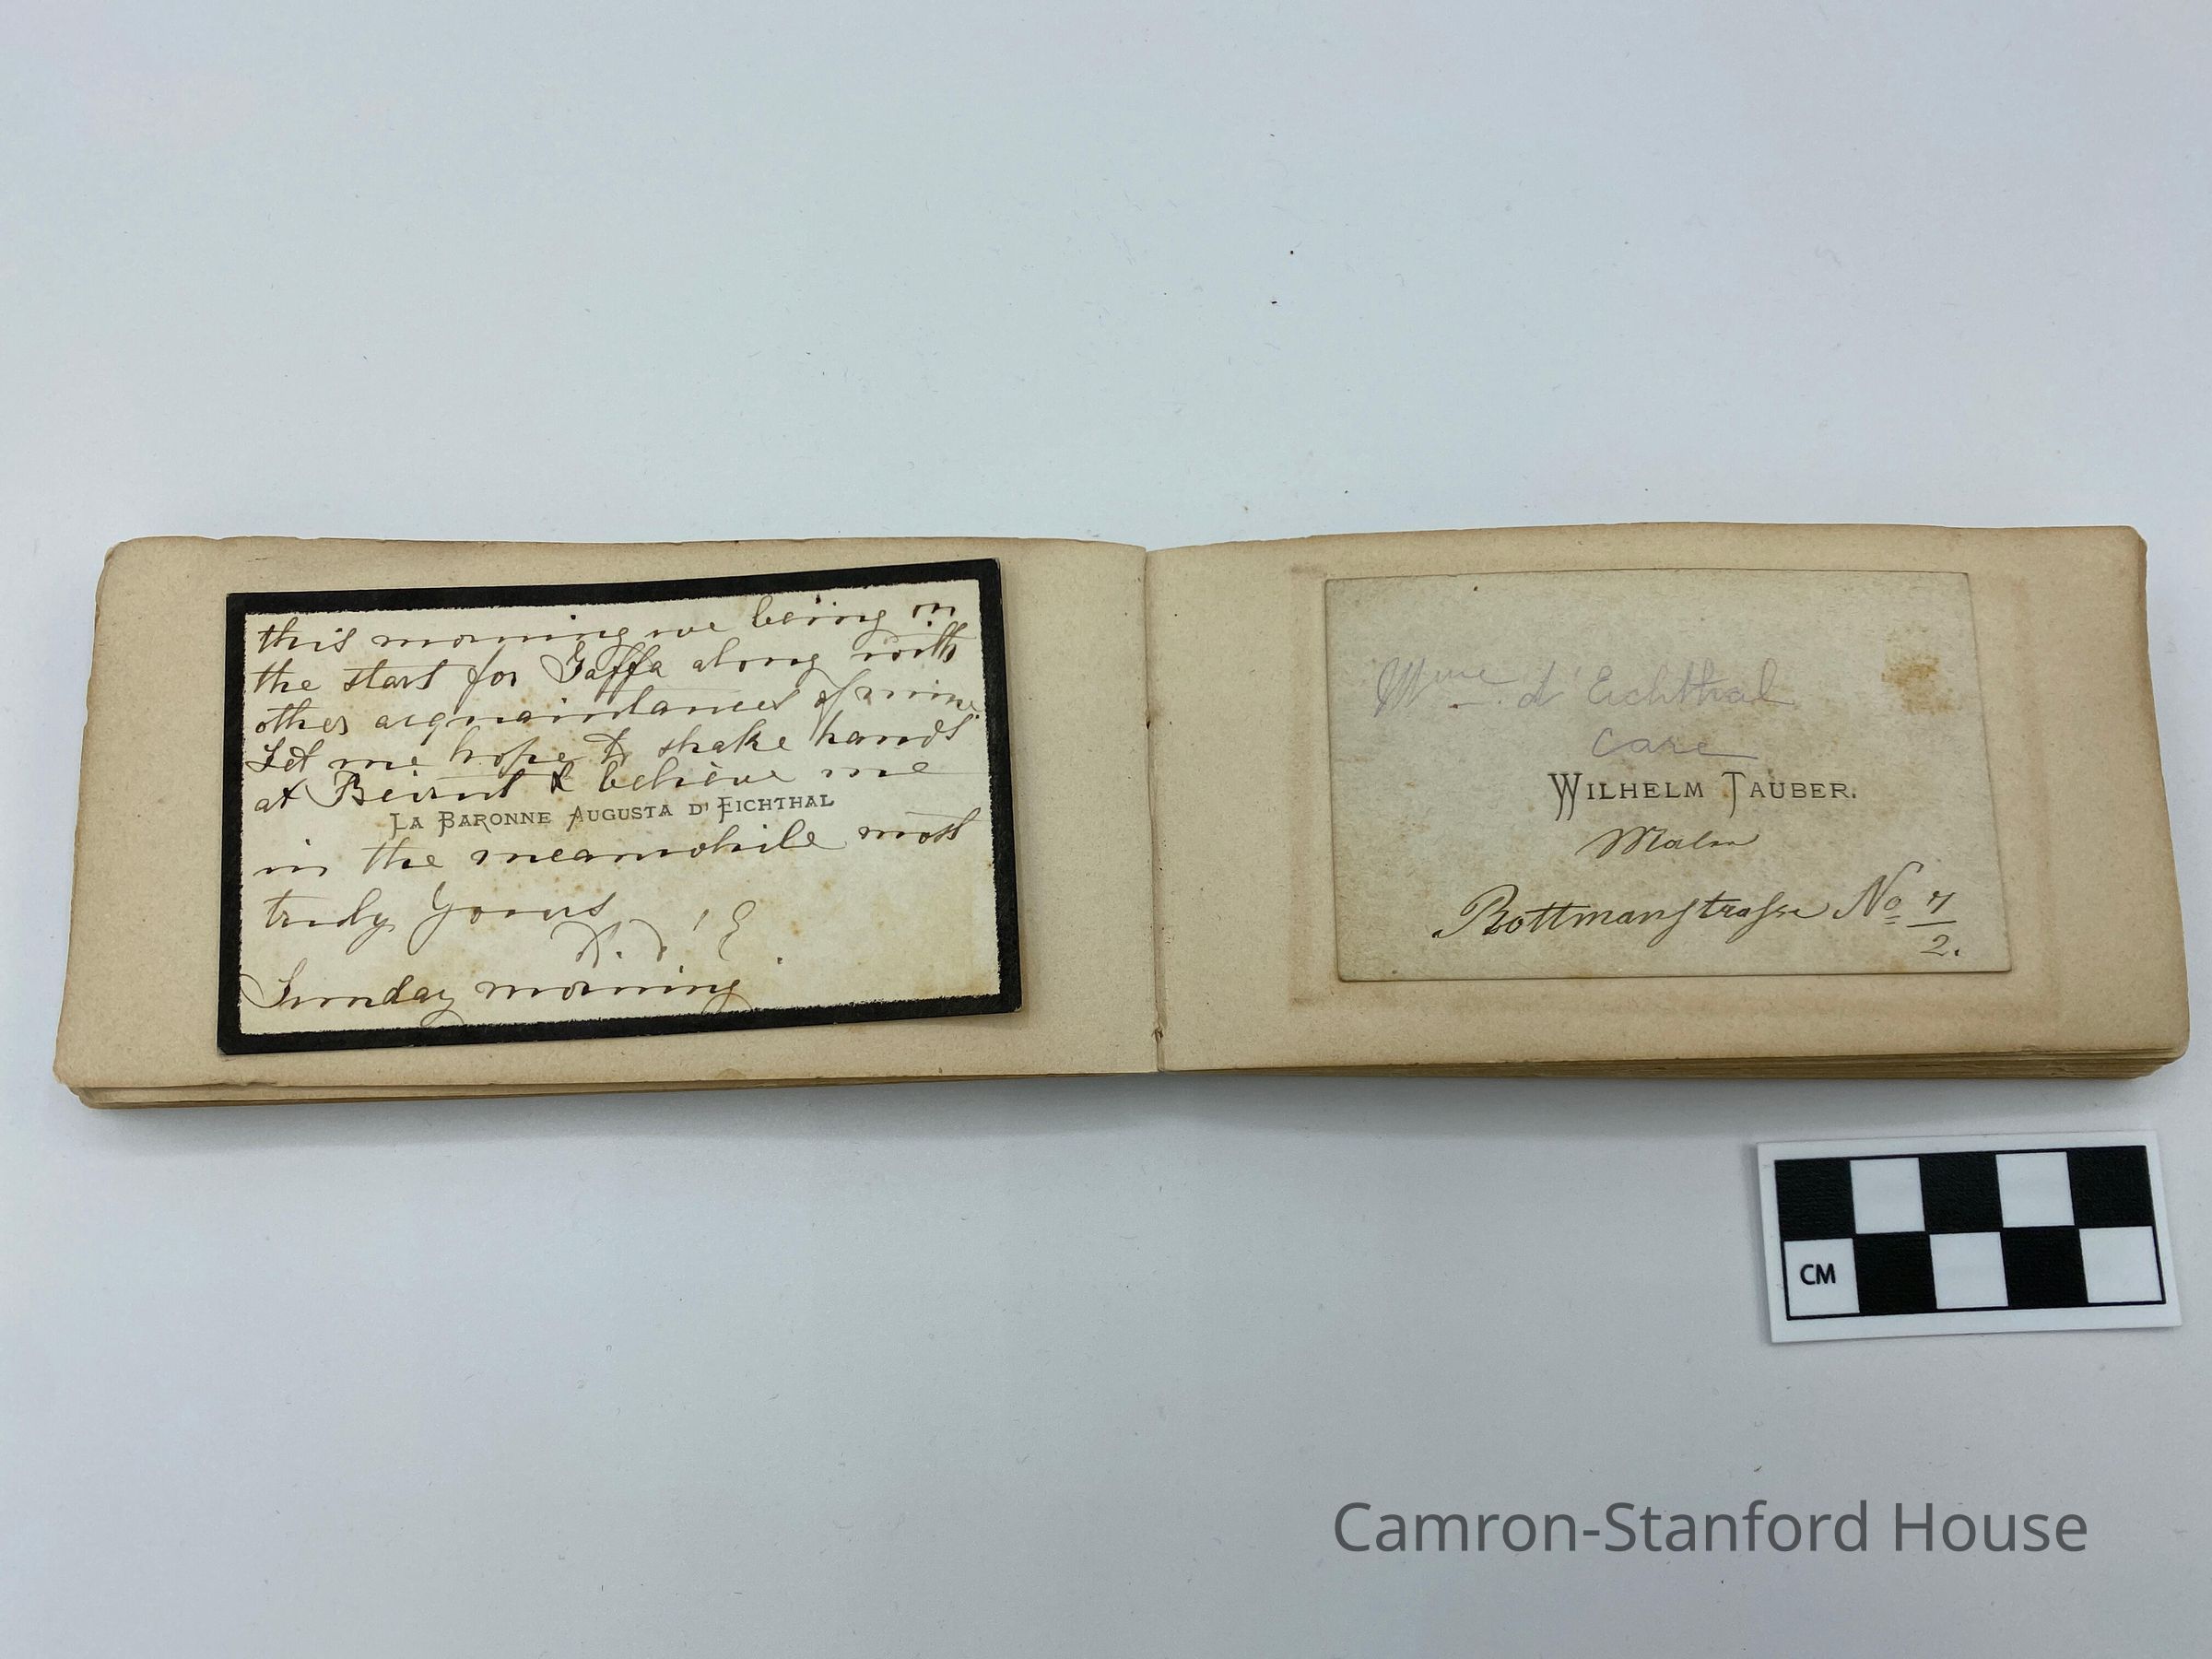 this morning we being on
the start for Jaffa along with
other acquaintances of mine.
Let me hope to shake hands
at Beirut & believe me
LA BARONNE AUGUSTA D'EICHTHAL
in the meanwhile most
truly yours
A. d'E.
Sunday morning
Mme d'Eichthal
care
WILHELM TAUBER.
Maler
Rottmanstrasse No 7/2.
CM
Camron-Stanford House